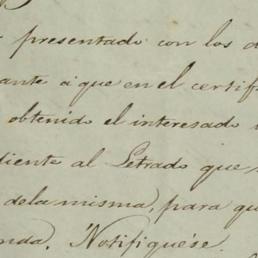 presentado con los d
ante á que en el certifi
obtenido el interesado
diente al Letrado que
dela misma, para qu
nda. Notifiquese.